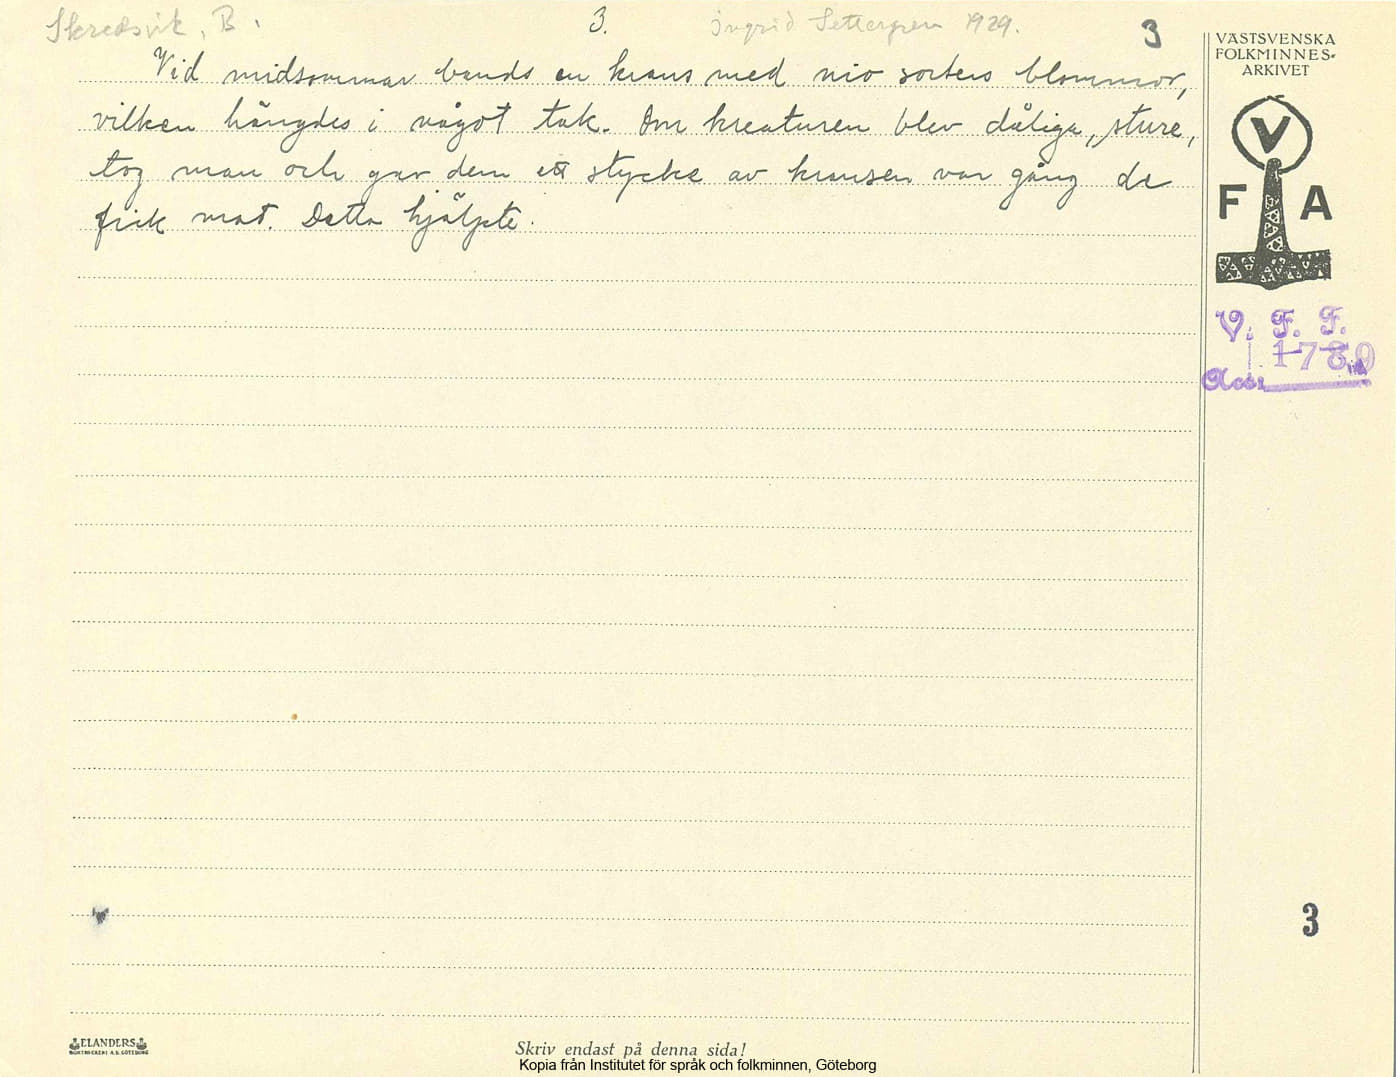 Skredsvik, B.
3.
Ingrid Settergren 1929.
3
Vid midsommar bands en krans med nio sorters blommor,
vilken hängdes i något tak. Om kreaturen blev dåliga, sture,
tog man och gav dem ett stycke av kransen var gång de
fick mat. Detta hjälpte.
VÄSTSVENSKA
FOLKMINNES-
ARKIVET
V
F A
V. F. F.
1789
Acc:
3
ELANDERS
BOKTRYCKERI A.B. GÖTEBORG
Skriv endast på denna sida!
Kopia från Institutet för språk och folkminnen, Göteborg